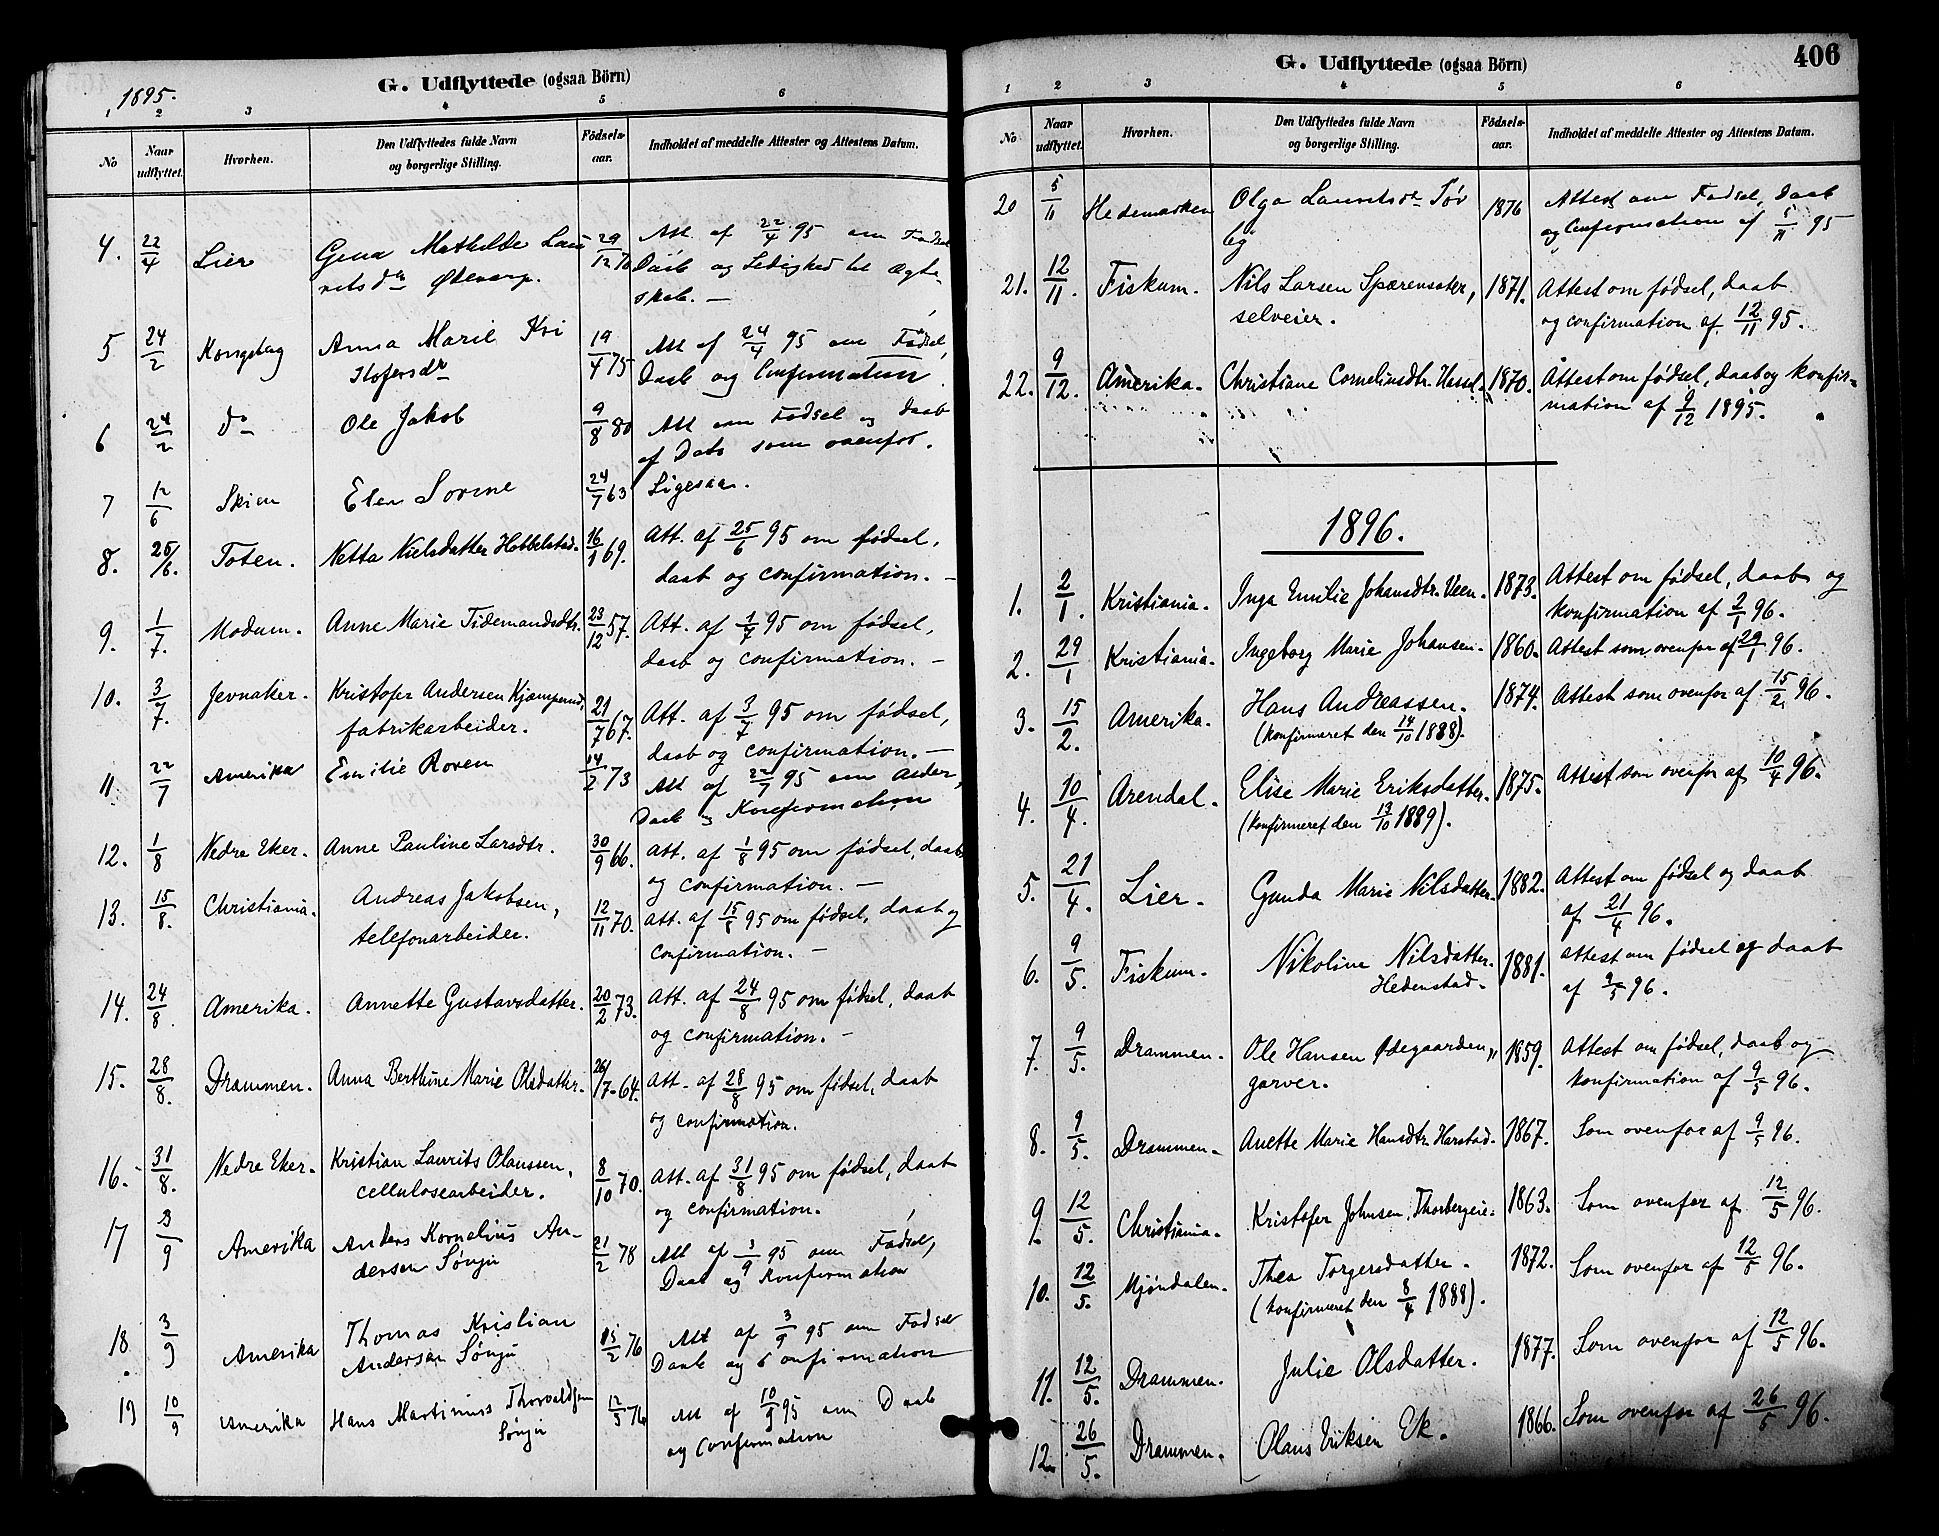 1895.
G. Udflyttede (ogsaa Börn)
1 2 3 4 5 6
No Naar udflyttet. Hvorhen. Den Udflyttedes fulde Navn og borgerlige Stilling. Födselsaar. Indholdet af meddelte Attester og Attestens Datum.
4. 22/4 Lier Gina Mathilde Lau 29/12 Att. af 22/4 95 om Fødsel
ritsdtr Daab og Ledighed til Ægte
skab. —
5 24/2 Kongsberg Anna Marie Kri 19/4 75 Att af 24/4 95 om Fødsel,
stofersdr Daab og Confirmation.
6 24/2 do Ole Jakob 9/8 80 Att om Fødsel og Daab
af Dato som ovenfor.
7 12/6 Skien Elen Sorine 24/7 63 Ligesaa.
8. 25/6. Toten. Netta Nielsdatter Hobbelstad. 16/1 69. Att. af 25/6 95 om fødsel,
daab og confirmation. —
9. 1/7. Modum. Anne Marie Tidemandsdtr. 23/12 57. Att. af 1/7 95 om fødsel,
daab og confirmation. —
10. 3/7. Jevnaker. Kristofer Andersen Kjæmperud, 21/7 67. Att. af 3/7 95 om fødsel,
fabrikarbeider. daab og confirmation. —
11 22/7 Amerika Emilie Roren 14/2 73 Att af 22/7 95 om Alder,
Daab og Konfirmation
12. 1/8 Nedre Eker. Anne Pauline Larsdtr. 30/9 66. att. af 1/8 95 om fødsel, daab
og confirmation. —
13. 15/8. Christiania. Andreas Jakobsen, 12/11 70. att. af 15/8 95 om fødsel, daab og
telefonarbeider. confirmation. —
14. 24/8. Amerika. Annette Gustavsdatter. 20/2 73. Att. af 24/8 95 om fødsel, daab
og confirmation. —
15. 28/8. Drammen. Anna Berthine Marie Olsdatter. 26/7 64. Att. af 28/8 95 om fødsel, daab
og confirmation.
16. 31/8. Nedre Eker. Kristian Laurits Olaussen, 8/10 70. Att. af 31/8 95 om fødsel, daab
cellulosearbeider. og confirmation.
17 3/9 Amerika Anders Kornelius An- 21/2 78 Att af 3/9 95 om Fødsel,
dersen Sønju Daab og Konfirmation
18. 3/9 Amerika Thomas Kristian 15/2 76 Att af 3/9 95 om Fødsel
Andersen Sønju Daab og Confirmation
19 10/9 Amerika Hans Martinius Thorvaldsen 12/3 76 Att af 10/9 95 om Daab
Sønju og Confirmation
406
G. Udflyttede (ogsaa Börn)
1 2 3 4 5 6
No Naar udflyttet. Hvorhen. Den Udflyttedes fulde Navn og borgerlige Stilling. Födselsaar. Indholdet af meddelte Attester og Attestens Datum.
20 5/11 Hedemarken Olga Lauritsdr Tør 1876 Attest om Fødsel, Daab
og Confirmation af 5/11 95
21. 12/11. Fiskum. Nils Larsen Spærensæter, 1871. Attest om fødsel, daab
selveier. og confirmation af 12/11 95.
22. 9/12. Amerika. Christiane Corneliusdtr. Hassel. 1870. Attest om fødsel, daab og konfir-
mation af 9/12 1895.
1896.
1. 2/1. Kristiania. Inga Emilie Johansdtr. Veen. 1873. Attest om fødsel, daab og
konfirmation af 2/1 96.
2. 29/1 Kristiania. Ingeborg Marie Johansen. 1860. Attest som ovenfor af 29/1 96.
3. 15/2. Amerika. Hans Andreassen. 1874. Attest som ovenfor af 15/2 96.
(konfirmeret den 14/10 1888).
4. 10/4. Arendal. Elise Marie Eriksdatter. 1875. Attest som ovenfor af 10/4 96.
(konfirmeret den 13/10 1889).
5. 21/4. Lier. Gunda Marie Nilsdatter. 1882. Attest om fødsel og daab
af 21/4 96.
6. 9/5. Fiskum. Nikoline Nilsdatter 1881. attest om fødsel og daab
Hedenstad. af 9/5 96.
7. 9/5. Drammen. Ole Hansen Ødegaarden, 1859. Attest om fødsel, daab og
garver. konfirmation af 9/5 96.
8. 9/5. Drammen. Anette Marie Hansdtr. Harstad. 1867. Som ovenfor af 9/5 96.
9. 12/5. Christiania. Kristofer Johnsen, Thorbergeie. 1863. Som ovenfor af 12/5 96.
10. 12/5. Mjøndalen. Thea Torgersdatter. 1872. Som ovenfor af 12/5 96.
(konfirmeret den 8/4 1888).
11. 12/5. Drammen. Julie Olsdatter. 1877. Som ovenfor af 12/5 96.
12. 26/5. Drammen. Olaus Eriksen Ek. 1866. Som ovenfor af 26/5 96.